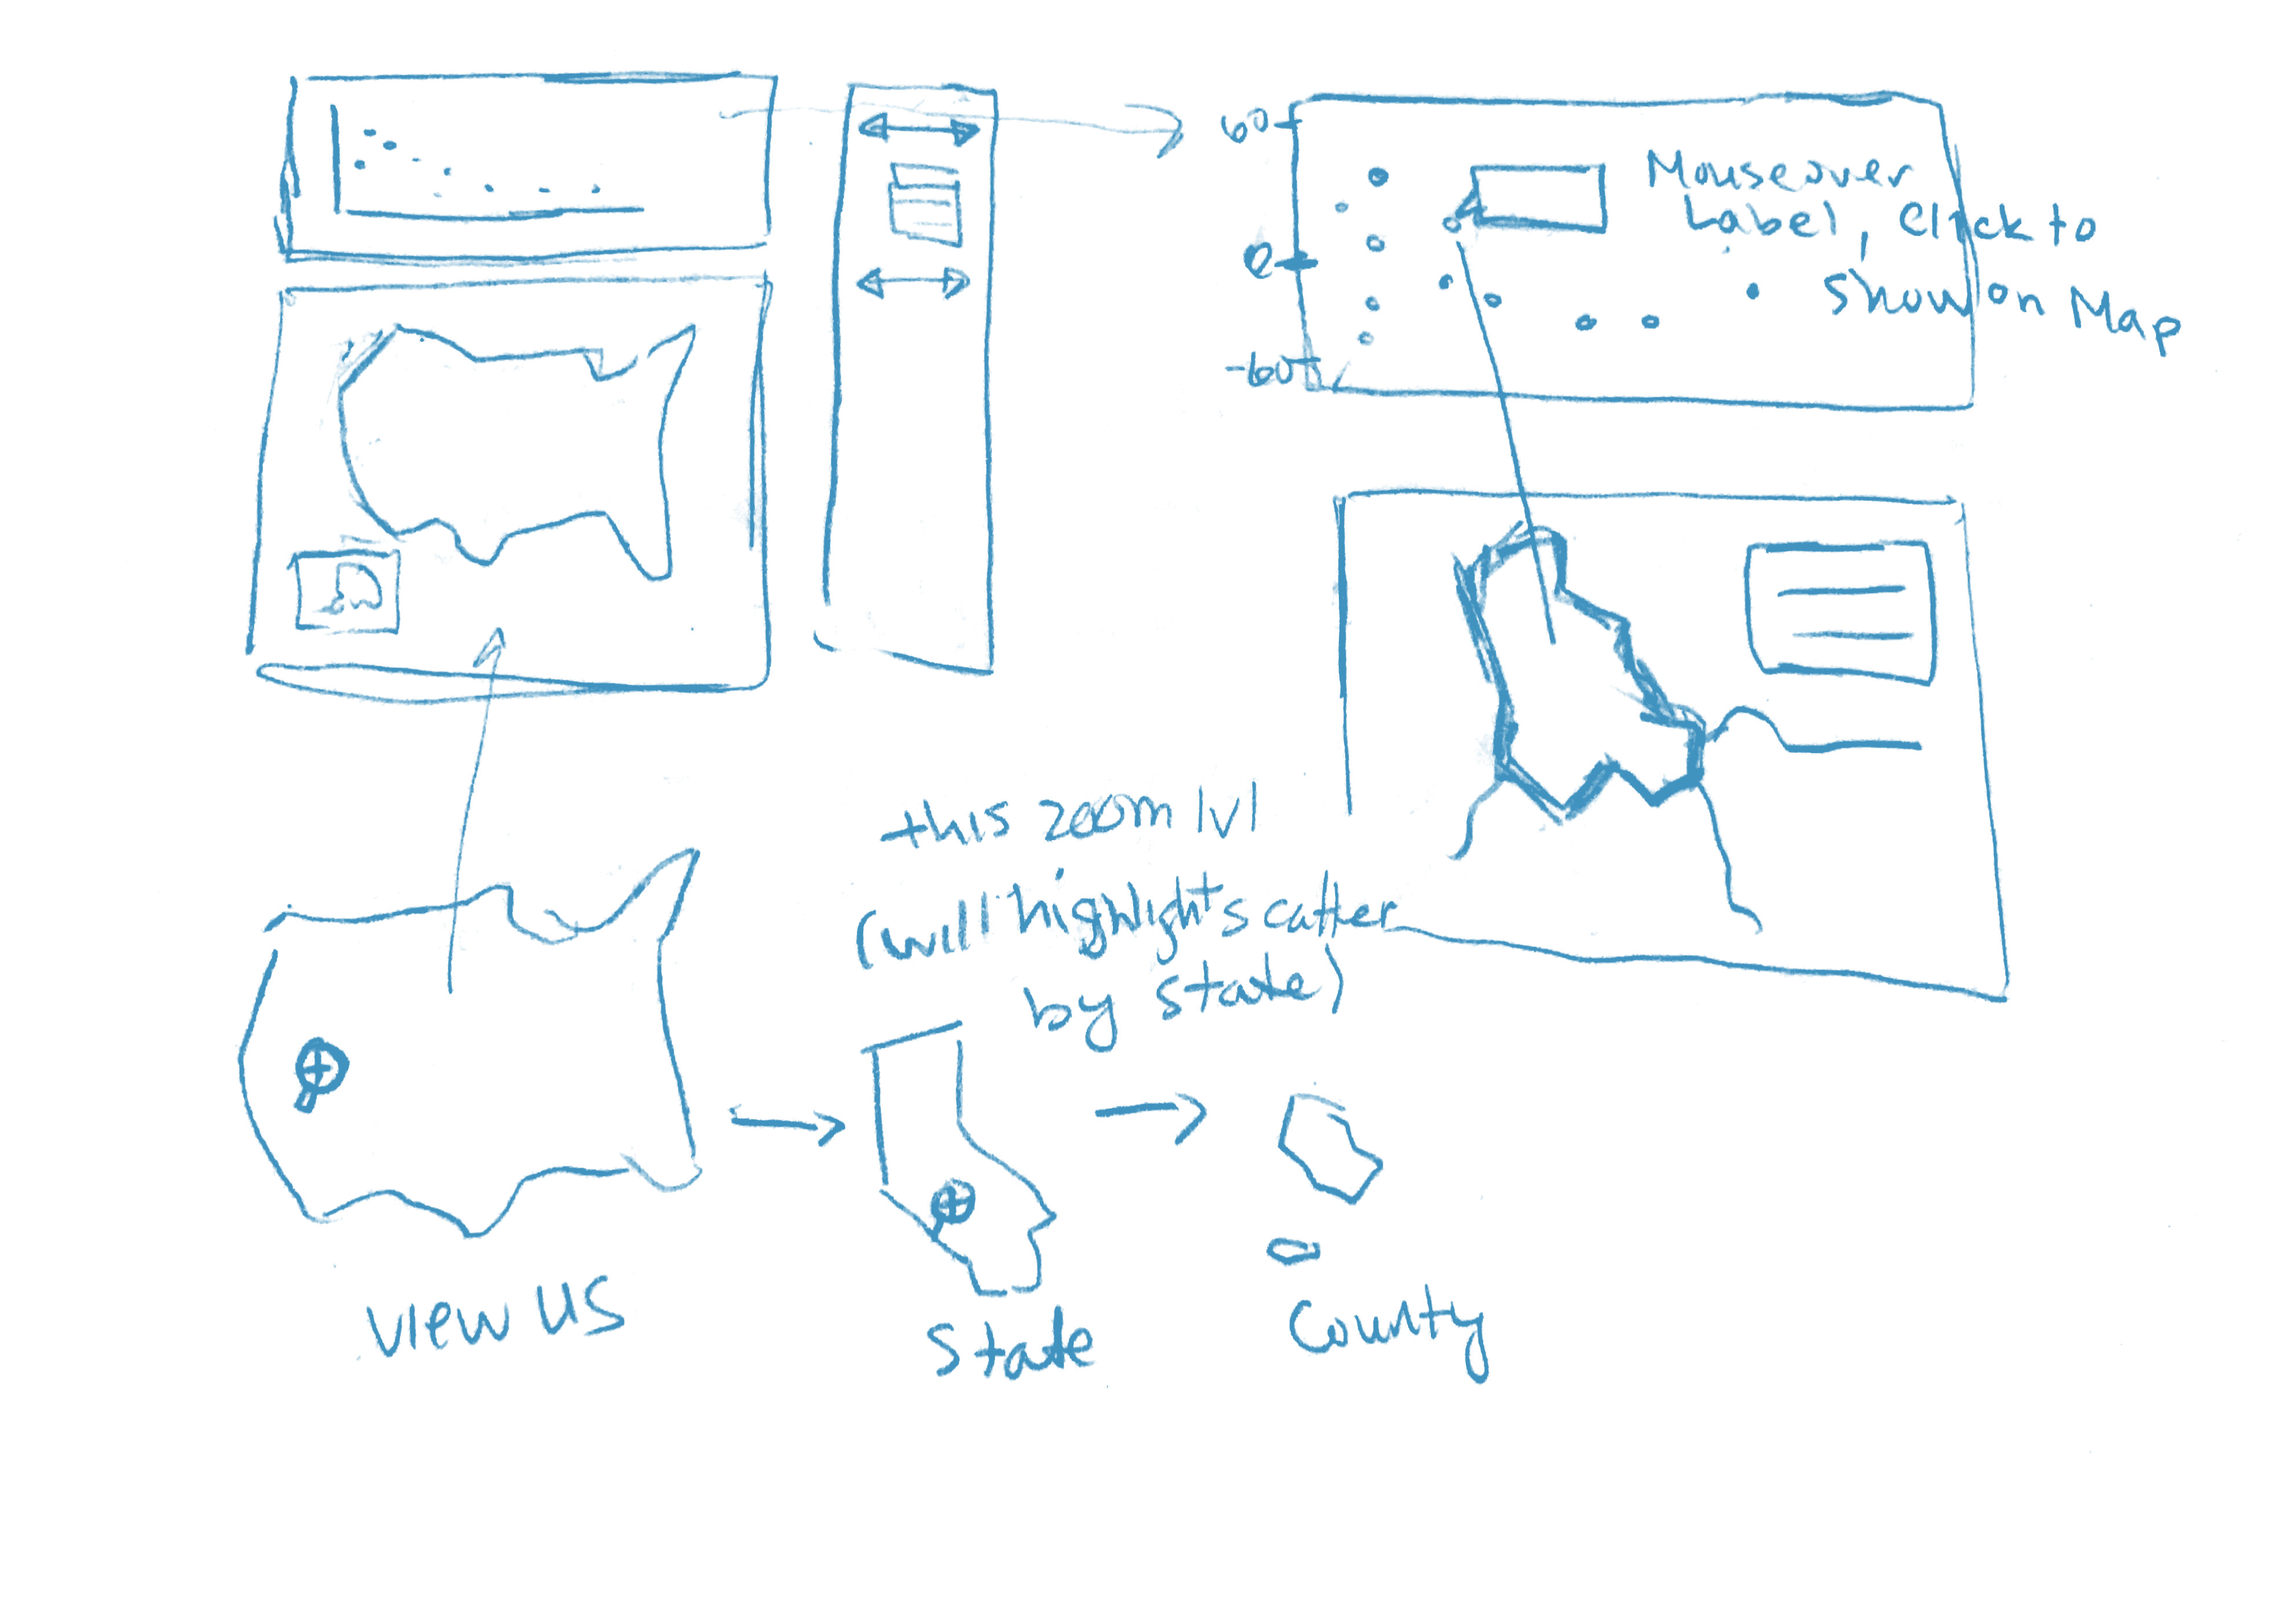 60
0
-60
Mouseover
Label, click to
show on Map
this zoom lvl
(will highlight scatter
by state)
view US
State
County